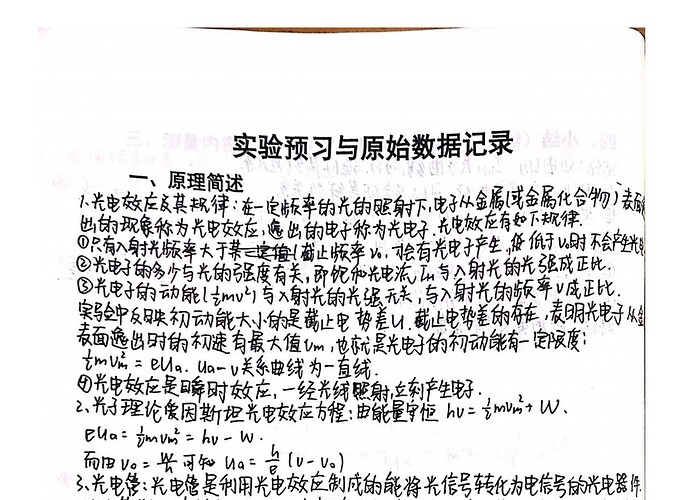 实验预习与原始数据记录
一、原理简述
1、光电效应及其规律：在一定频率的光的照射下，电子从金属（或金属化合物）表面
出的现象称为光电效应，逸出的电子称为光电子。光电效应有如下规律.
①只有入射光频率大于某一定值（截止频率ν₀，才会有光电子产生，低于ν₀时不会产生光电
②光电子的多少与光的强度有关，即饱和光电流Im与入射光的光强成正比.
③光电子的动能(½mv²)与入射光的光强无关，与入射光的频率ν成正比.
实验中反映初动能大小的是截止电势差U，截止电势差的存在，表明光电子从金
表面逸出时的初速有最大值vm，也就是光电子的初动能有一定限度：
½mvm² = eUa. Ua-ν关系曲线为一直线.
④光电效应是瞬时效应，一经光线照射，立刻产生电子.
2、光子理论爱因斯坦光电效应方程：由能量守恒 hν = ½mvm² + W.
eUa = ½mvm² = hν - W.
而由ν₀ = 可知 Ua = h/e (ν - ν₀)
3、光电管：光电管是利用光电效应制成的能将光信号转化为电信号的光电器件